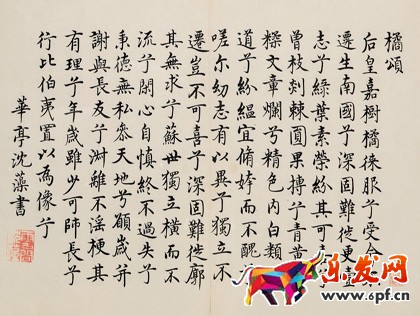 橘頌
后皇嘉樹橘徠服兮受命不
遷生南國兮深固難徙更壹
志兮綠葉素榮紛其可喜兮
曾枝剡棘圓果摶兮青黃
糅文章爛兮精色內白類
道兮紛緼宜脩姱而不醜
嗟尔幼志有以異兮獨立不
遷豈不可喜兮深固難徙廓
其無求兮蘇世獨立橫而不
流兮閉心自慎終不過失兮
秉德無私叅天地兮願歲并
謝與長友兮淑離不淫梗其
有理兮年歲雖少可師長兮
行比伯夷置以為像兮
華亭沈藻書
乐发网
www.6pf.cn